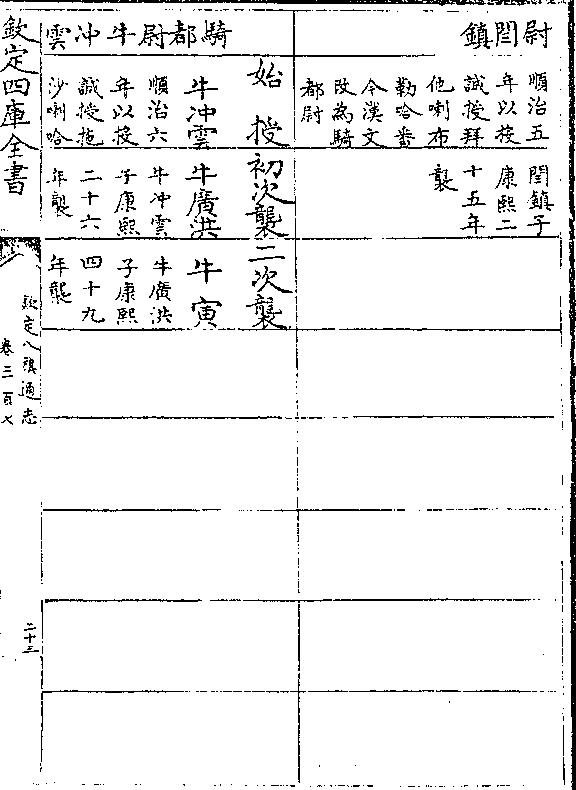 尉閻鎮
順治五
年以投
誠授拜
他喇布
勒哈番
今漢文
改為騎
都尉
閻鎮子
康熙二
十五年
襲
始授
初次襲
二次襲
騎都尉牛冲雲
牛冲雲
順治六
年以投
誠授拖
沙喇哈
牛廣洪
牛冲雲
子康熙
二十六
年襲
牛寅
牛廣洪
子康熙
四十九
年襲
欽定四庫全書
欽定八旗通志
卷三百七
二十三